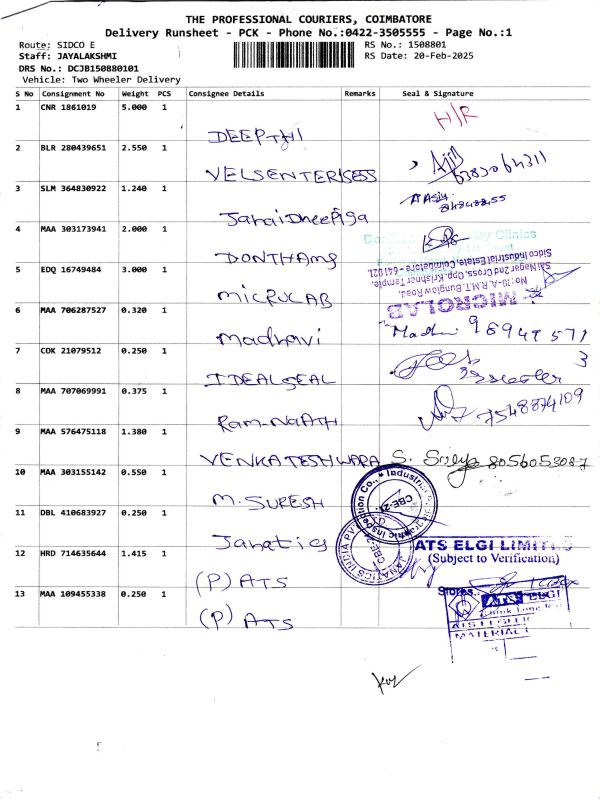 THE PROFESSIONAL COURIERS, COIMBATORE
Delivery Runsheet - PCK - Phone No.:0422-3505555 - Page No.:1
Route: SIDCO E
RS No.: 1508801
Staff: JAYALAKSHMI
RS Date: 20-Feb-2025
DRS No.: DCJB150880101
Vehicle: Two Wheeler Delivery
S No Consignment No Weight PCS Consignee Details Remarks Seal & Signature
1 CNR 1861019 5.000 1 DEEPTHI H/R
2 BLR 280439651 2.550 1 VELSENTERISESS
3 SLM 364830922 1.240 1
4 MAA 303173941 2.000 1 DONTHAMS
5 EDQ 16749484 3.000 1 MICROLAB
MICROLAB
No: 10-A, R.M.T. Bunglow Road,
Sai Nagar 2nd Cross, Opp. Krishnar Temple,
Sidco Industrial Estate, Coimbatore - 641 021
6 MAA 706287527 0.320 1 Madhavi
7 COK 21079512 0.250 1 IDEALSEAL
8 MAA 707069991 0.375 1 Ram-NaATH 7548874109
9 MAA 576475118 1.380 1 VENKATESHWARA S. 8056053087
10 MAA 303155142 0.550 1 M. SURESH
11 DBL 410683927 0.250 1 Janatics
JANATICS INDIA PVT
ATS ELGI LIMITED
(Subject to Verification)
12 HRD 714635644 1.415 1 (P) ATS
Stores
13 MAA 109455338 0.250 1 (P) ATS
ATS ELGI
MATERIAL